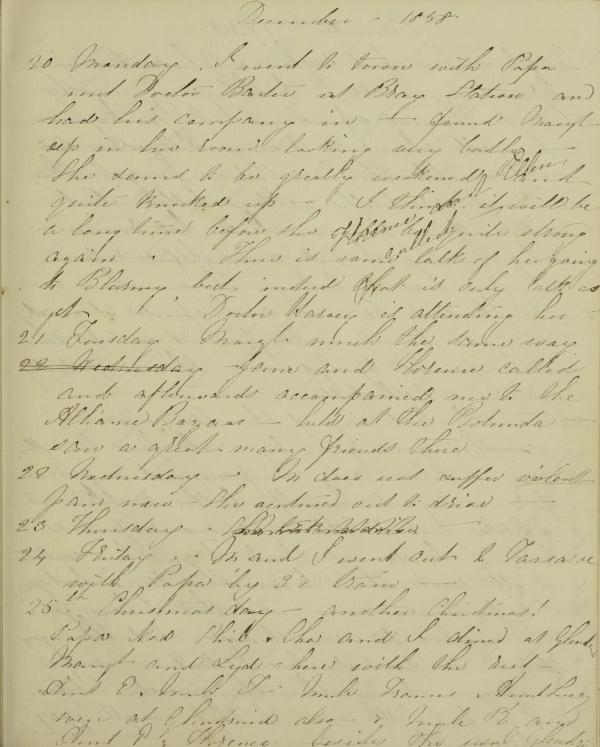 December · 1858
20 Monday. I went to town with Papa
met Doctor Baxter at Bray Station and
had his company in — found Margt
up in her room looking very badly
She seems to be greatly weakened and Ellen
quite knocked up — I think it will be
a long time before she quite strong
Florence called
again. There is some talk of her going
to but indeed that is only talk as
yet . ! Doctor Harvey is attending her —
21 Tuesday Margt much the same way
22 Wednesday Jane and Florence called
and afterwards accompanied me to the
Alliance Bazaar — held at the Rotunda
saw a great many friends there —
22 Wednesday · M does not suffer violent
pain now — she ventured out to drive —
23 Thursday ·
24 Friday . . M and I went out to
with Papa by 3 train —
25th Christmas day — another Christmas!
Papa Ned Phil & Chas and I dined at
Margt and Lyd — here with the rest —
Aunt E. Uncle T — Uncle Francis &
were at also — & Uncle R. and
Aunt & Florence — besides the usual